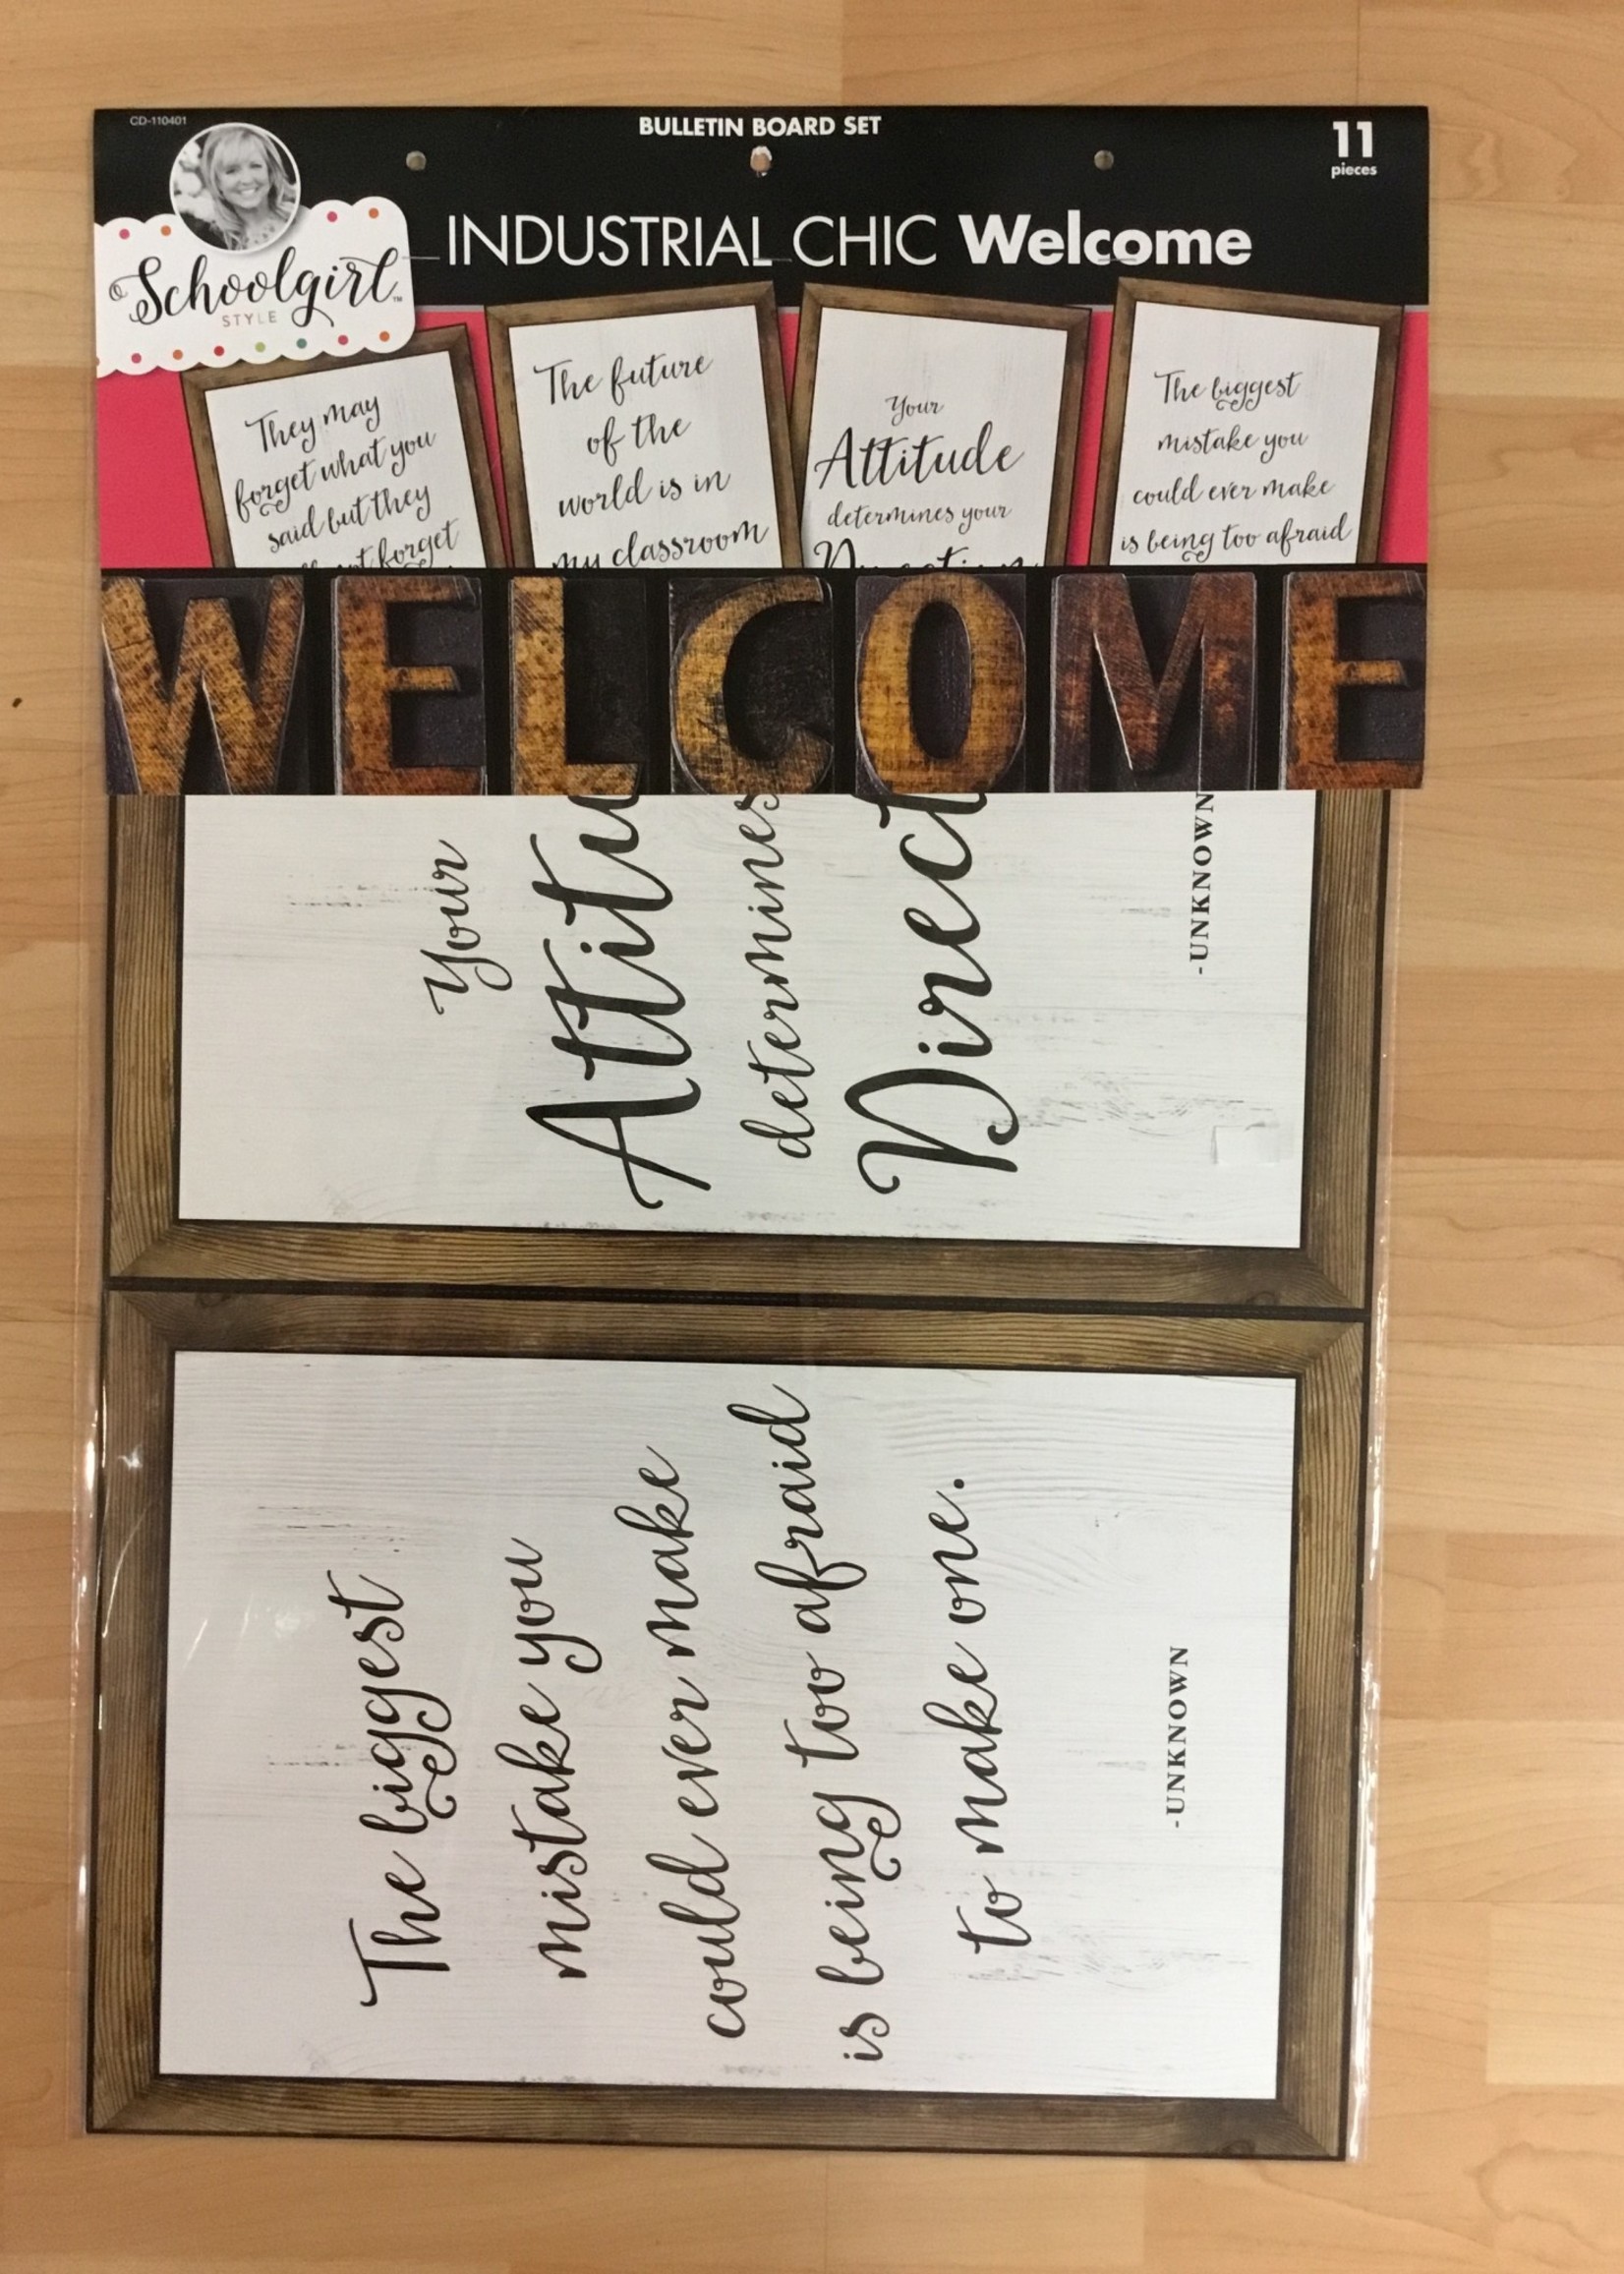 CD-110401
BULLETIN BOARD SET
11
pieces
Schoolgirl
STYLE
INDUSTRIAL CHIC Welcome
They may
forget what you
said but they
forget
The future
of the
world is in
my classroom
Your
Attitude
determines your
The biggest
mistake you
could ever make
is being too afraid
WELCOME
Your
Attitu
determines
Direct
-UNKNOWN
The biggest
mistake you
could ever make
is being too afraid
to make one.
-UNKNOWN